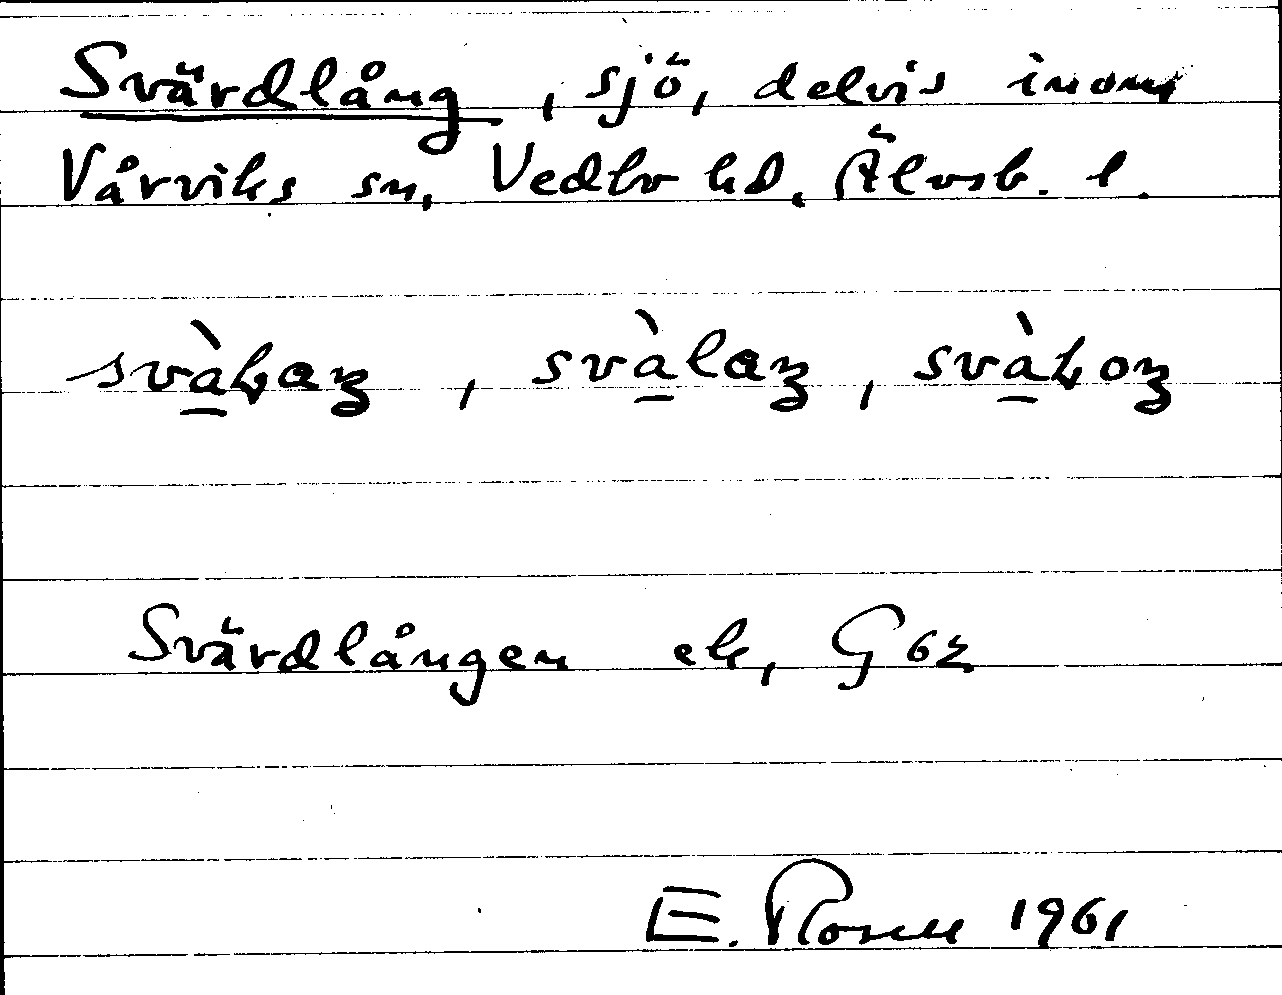 Svärdlång, sjö, delvis inom
Vårviks sn, Vedbo hd, Älvsb. l.
svàlaŋ, svàlaŋ, svàloŋ
Svärdlången ek, G 62
E. Rosell 1961